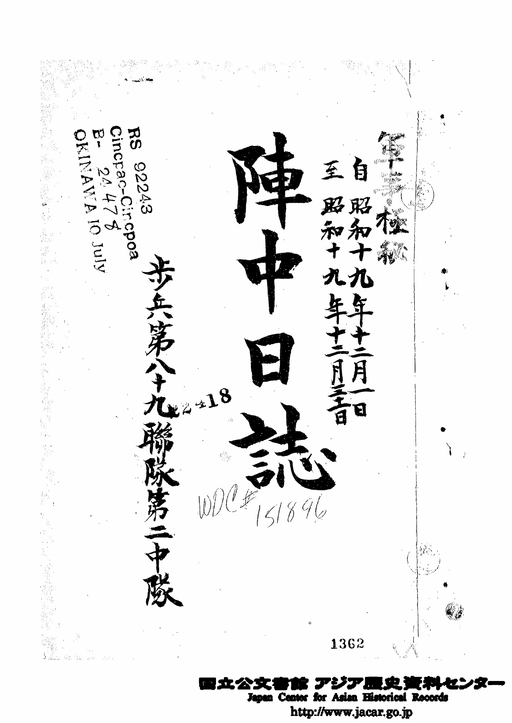 軍事極秘
自 昭和十九年十二月一日
至 昭和十九年十二月三十一日
陣中日誌
歩兵第八十九聯隊第二中隊
RS 92243
Cincpac-Cincpoa
B- 24,478
OKINAWA 10 July
22418
WDC# 151896
1362
国立公文書館 アジア歴史資料センター
Japan Center for Asian Historical Records
http://www.jacar.go.jp